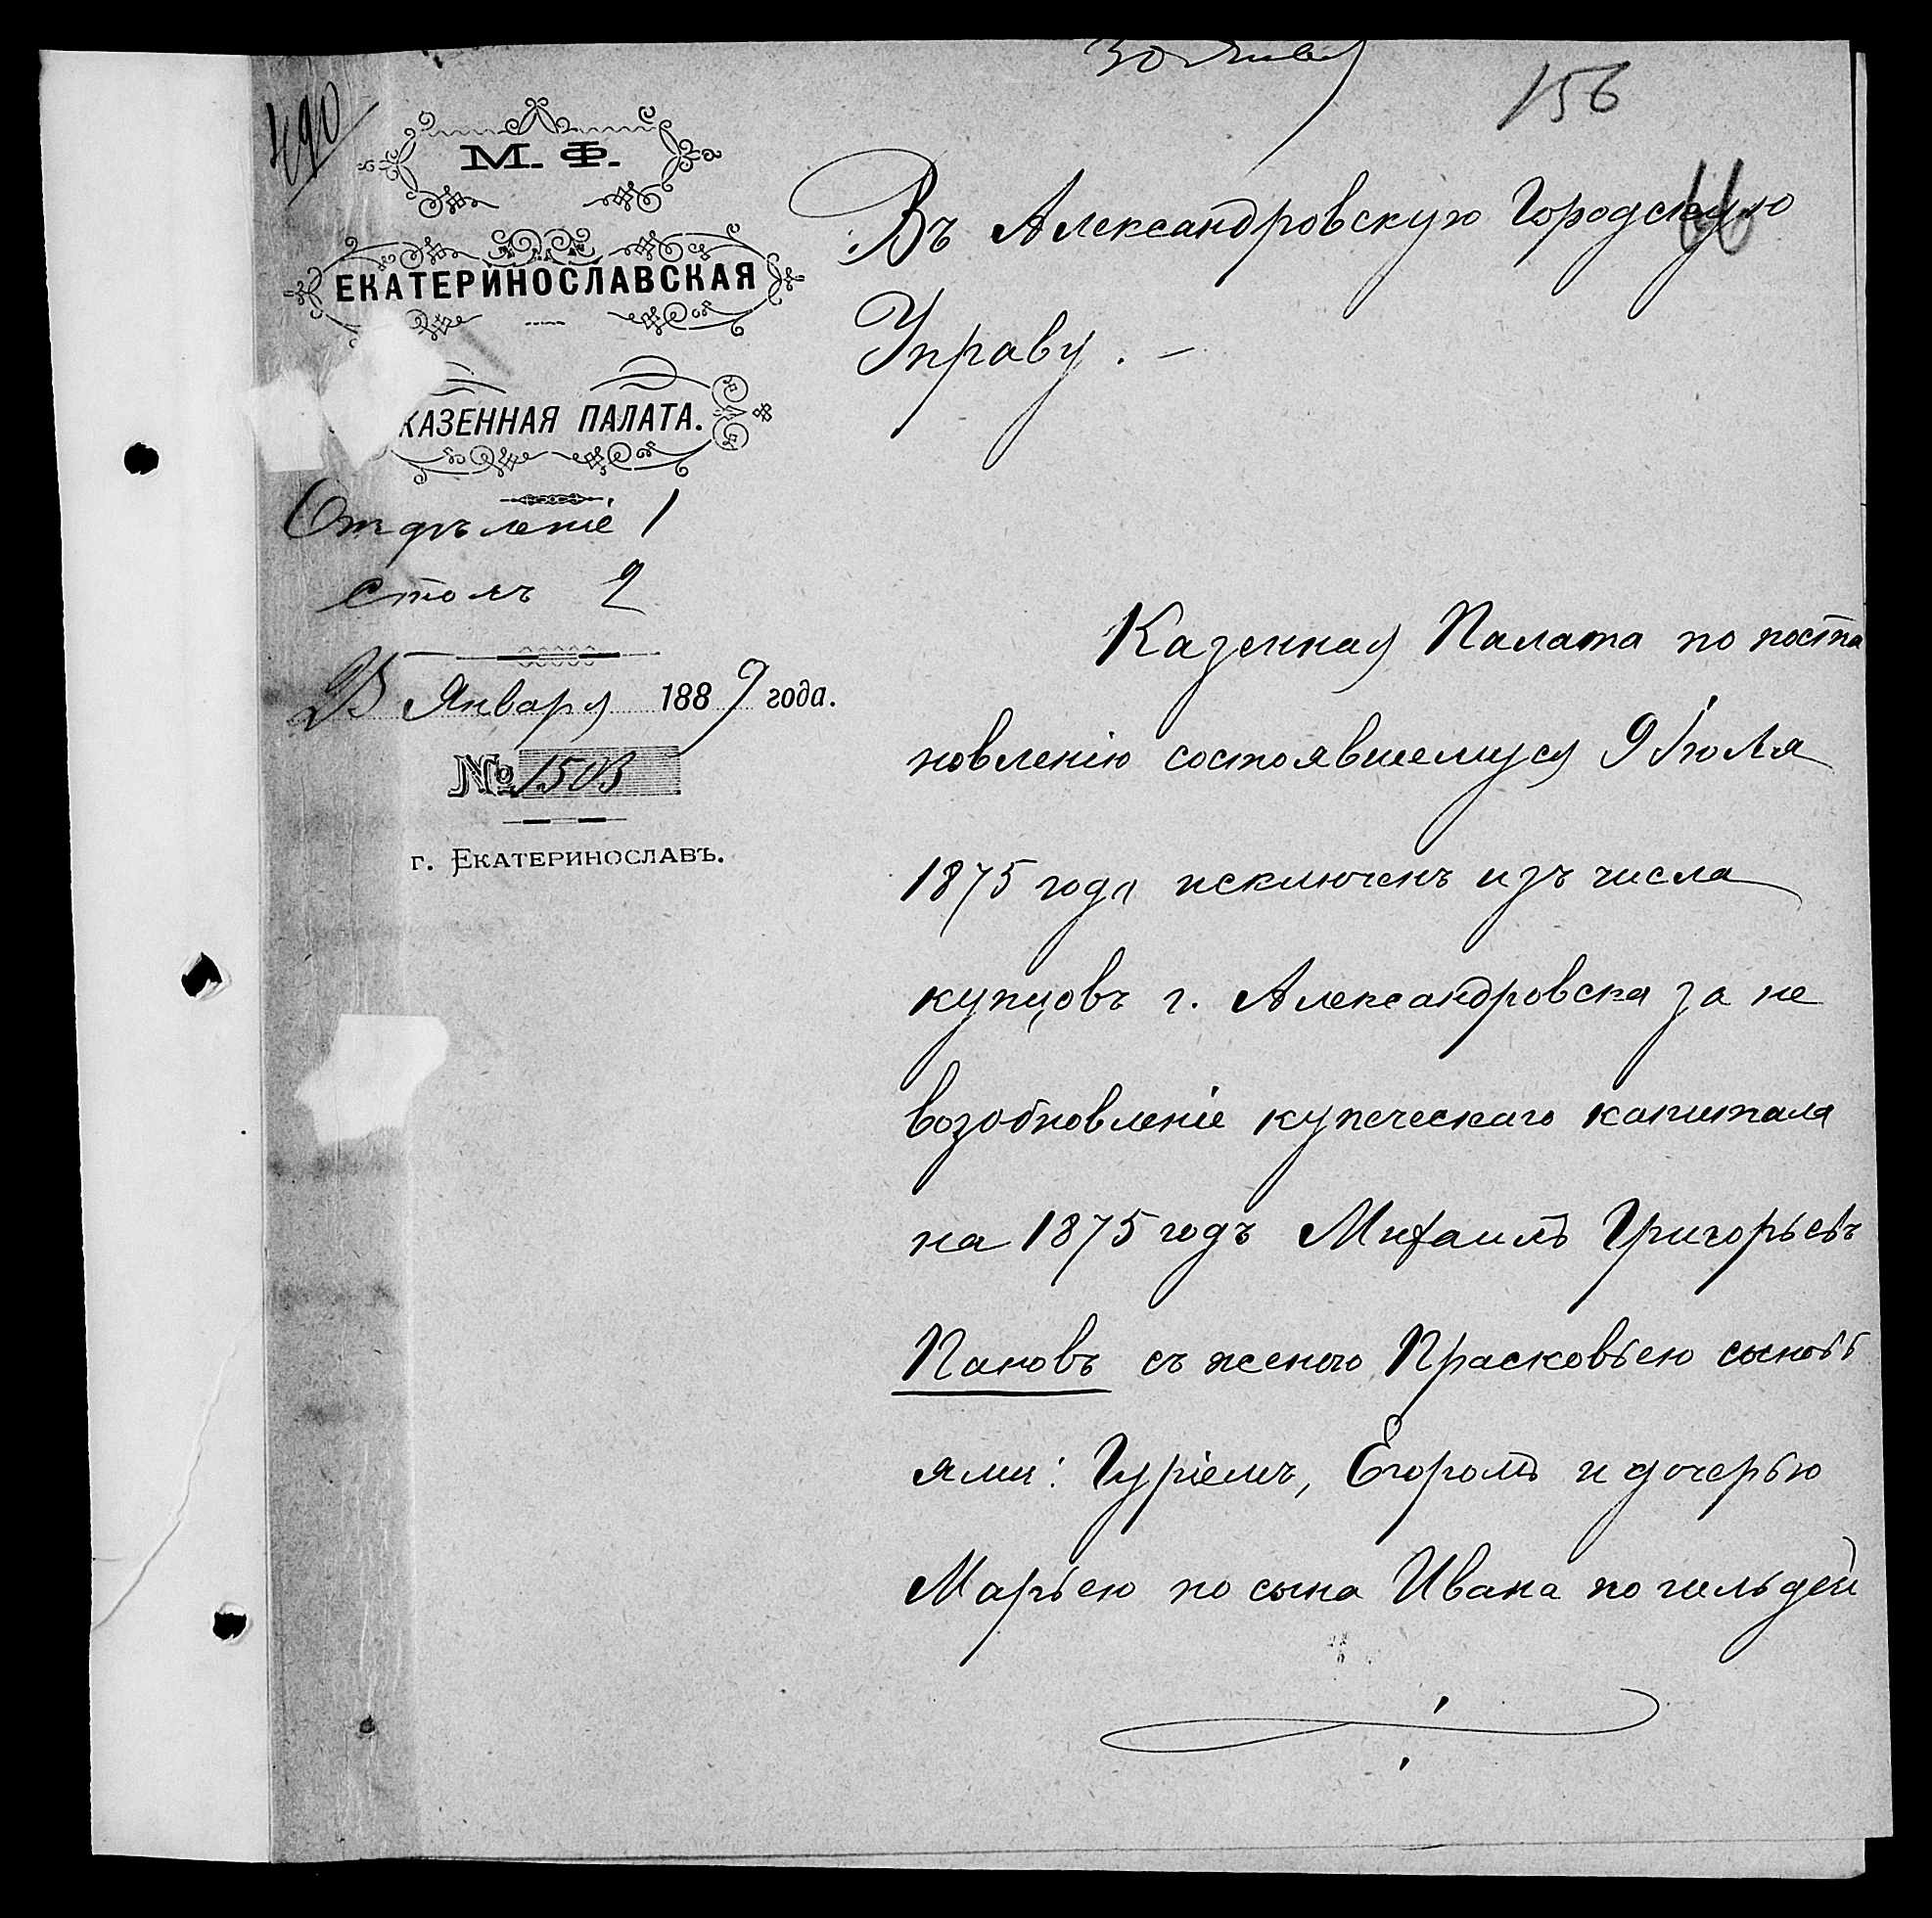 30 Янв
156
490
М. Ф.
66
Въ Александровскую Городскую
Управу. –
ЕКАТЕРИНОСЛАВСКАЯ
КАЗЕННАЯ ПАЛАТА.
Отдѣленіе 1
столъ 2
25 Января 1889 года.
№ 1503
г. ЕКАТЕРИНОСЛАВЪ.
Казенная Палата по поста
новленію состоявшемуся 9 Іюля
1875 года исключенъ изъ числа
купцовъ г. Александровска за не
возобновленіе купеческаго капитала
на 1875 годъ Михаилъ Григорьевъ
Пановъ съ женою Прасковьею сыновь
ями: Гуріемъ, Егоромъ и дочерью
Марьею но сына Ивана по гильдей